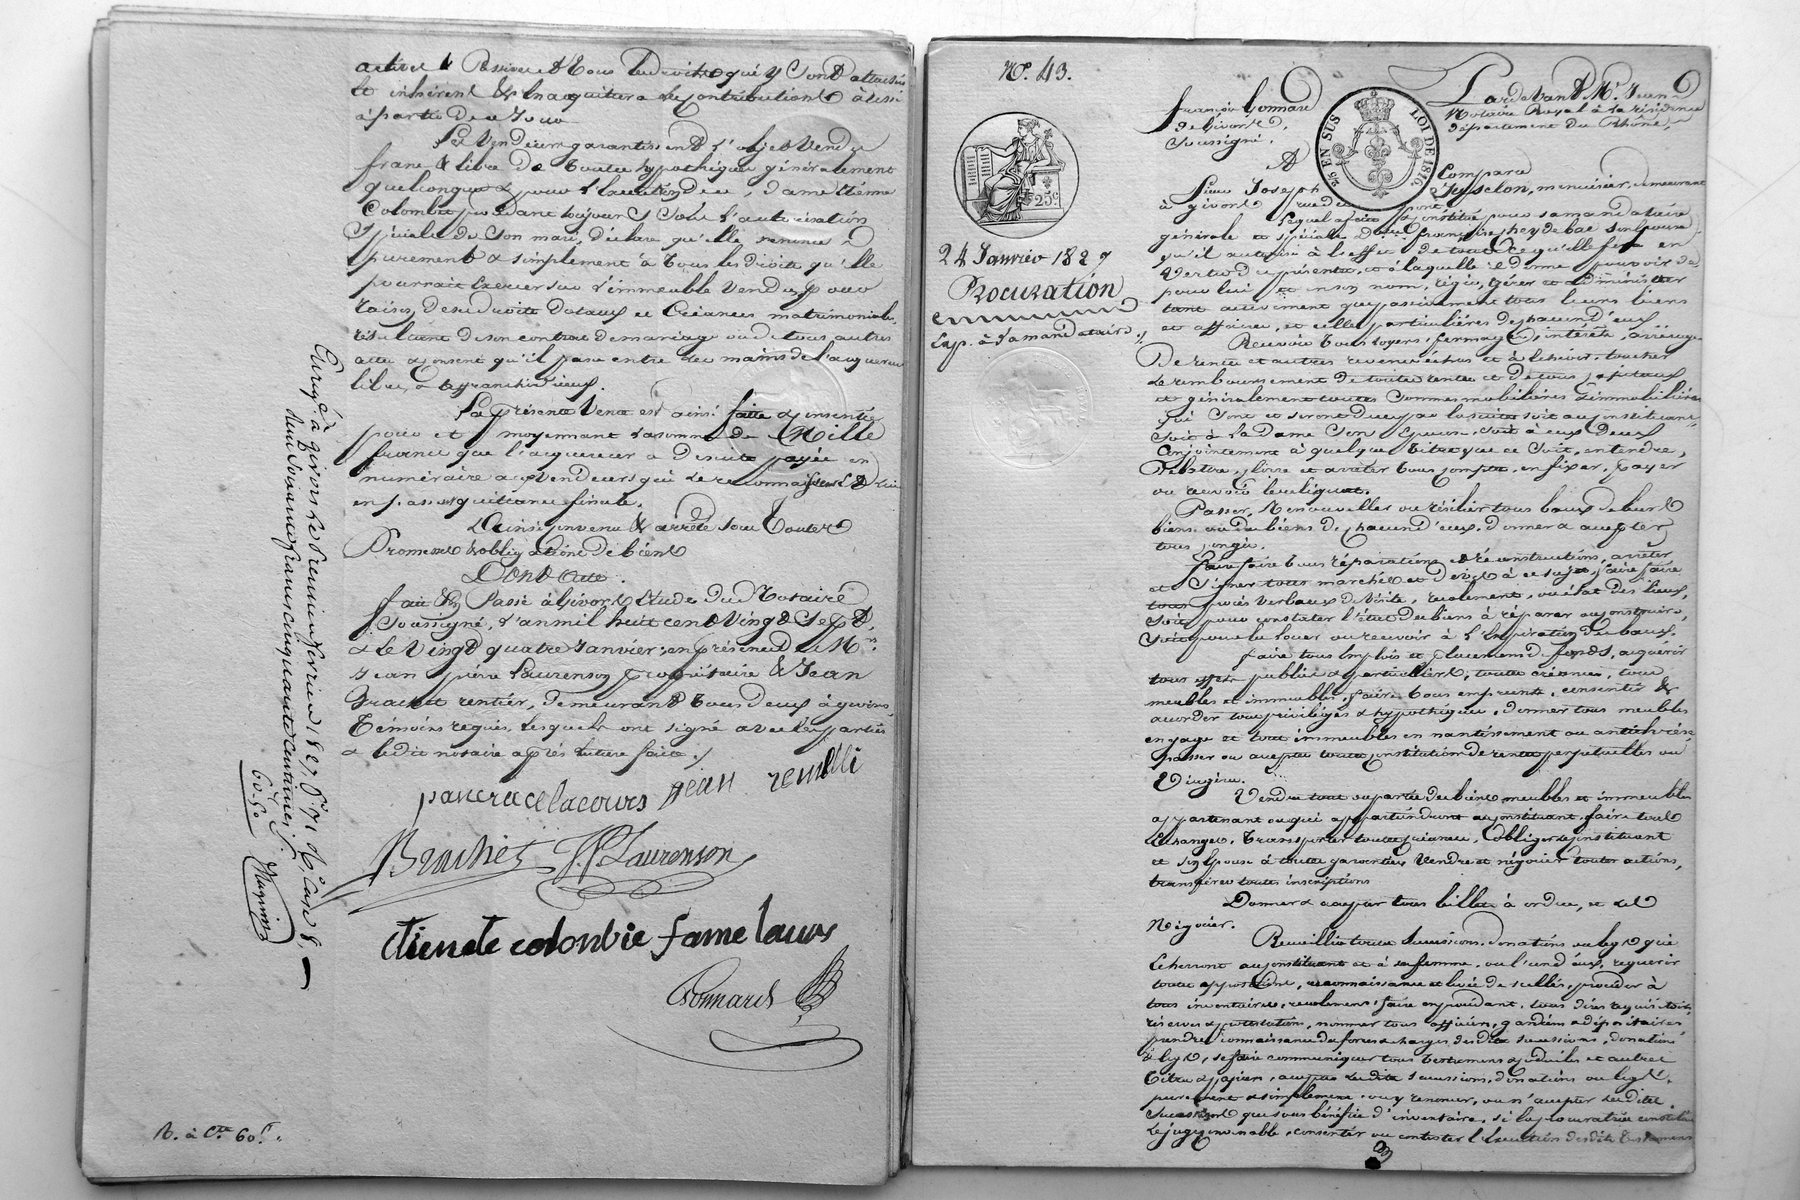 active & passive et tous les droits qui y sont attachés
et inhérent & en acquittera les contributions
à partir de ce jour
Les Vendeurs garantissent l'objet vendu
franc & libre de toutes hypothèques généralement
quelconques & pour l'exécution dame Etiennette
Colombie procédant toujours sous l'autorisation
spéciale de son mari, déclare qu'elle renonce
purement & simplement à tous les droits qu'elle
pourrait exercer sur l'immeuble vendu, pour
raison de ses droits dotaux et créances matrimoniales
résultant de son contrat de mariage ou de tous autres
actes & consent qu'il passe entre les mains de l'acquéreur
libre, & affranchi d'iceux.
La présente Vente est ainsi faite & consentie
pour et moyennant la somme de Mille
francs que l'acquéreur a de suite payée en
numéraire aux vendeurs qui le reconnaissent &
en passent quittance finale.
Ainsi convenu & arrêté sous toutes
Promesses & obligations de biens
Dont Acte.
fait & Passé à Givors Etude du Notaire
soussigné, l'an mil huit cent Vingt Sept,
& le Vingt quatre Janvier en présence de Mrs
Jean pierre Laurenson propriétaire & Jean
Brachet rentier, demeurant tous deux à givors,
témoins requis, lesquels ont signé avec les parties
& le dit notaire après lecture faite.
pancrace lacours jean remilli
Brachet JP Laurenson
etienete colonbie fame lacurs
Bonnard
Enregé à givors le Premier février 1827. fo 71 Ro Case 8,
soixante francs cinquante centimes
60.50
R. à Cre 60 f.
No. 43.
25c
24 Janvier 1827
Procuration
Exp. à la mandataire
Pardevant Me. Jean
françois Bonnard Notaire Royal à la résidence
de Givors, département du Rhône,
soussigné,
2/5 EN SUS LOI DE 1816.
A Comparu
Sieur Joseph Teyselon, menuisier, demeurant
à givors rue du pont
Lequel a fait & constitué pour sa mandataire
générale et spéciale Dame françoise heydebac son épouse
qu'il autorise à l'effet de tout ce qu'elle fera en
vertu des présentes, et à laquelle il donne pouvoir de
pour lui et en son nom, régir, gérer et administrer
tant activement que passivement tous leurs biens
et affaires, et celles particulières de chacun d'eux
Recevoir tous loyers, fermages, intérêts, arrérages
De rente et autres revenus échus et à échoir, toucher
le remboursement de toutes rentes et de tous capitaux
et généralement toutes sommes mobilières & immobilières
qui sont et seront dues par la suite soit au constituant
soit à la dame son épouse, soit à eux deux
Conjointement à quelque titre que ce soit, entendre,
débattre, clore et arrêter tous comptes, en fixer, payer
ou recevoir le reliquat.
Passer, Renouveller ou résilier tous baux de leurs
biens ou des biens de chacun d'eux, donner & accepter
tous congés.
faire faire toutes réparations & reconstructions, arrêter
et signer tous marchés et devis à ce sujet, faire faire
tous procès verbaux de visite, recolement, ou état des lieux,
soit pour constater l'état des biens à réparer ou construire,
soit pour les louer ou recevoir à l'Expiration des baux.
faire tous Emplois et placements de fonds, acquérir
tous effets publics & particuliers, toutes créances, tous
meubles et immeubles, faire tous emprunts, consentir &
accorder tous privilèges & hypothèques, donner tous meubles
en gage et tous immeubles en nantissement ou antichrèse
passer ou accepter toutes constitutions de rentes perpétuelles ou
Viagères.
Vendre tout ou partie des biens meubles et immeubles
appartenant ou qui appartiendront au constituant, faire tous
Echanges, Transporter toutes créances, Obliger le constituant
et son épouse à toutes garanties, Vendre et négocier toutes actions,
transférer toutes inscriptions
Donner & accepter tous billets à ordre, et les
Négocier.
Recueillir toutes successions, donations ou legs qui
écherront au constituant et à sa femme, ou l'un d'eux, requérir
toutes appositions, reconnaissances et levées de scellés, procéder à
tous inventaires, recolements, faire en procédant, tous dires réquisitoires,
réserves & protestations, nommer tous officiers, gardiens & dépositaires,
prendre connaissance des forces & charges des dites successions, donations
& legs, se faire communiquer tous testaments & codiciles et autres
titres & papiers, accepter les dites successions, donations ou legs,
purement & simplement, ou y renoncer, ou n'accepter les dites
successions que sous bénéfice d'inventaire, si la procuratrice constituée
le juge convenable, consentir ou contester l'exécution des dits testaments